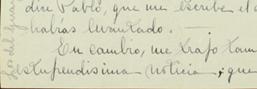 dice Pablo, que me escribe el d
habías levantado. —
En cambio, me trajo tam
estupendisima noticia, que